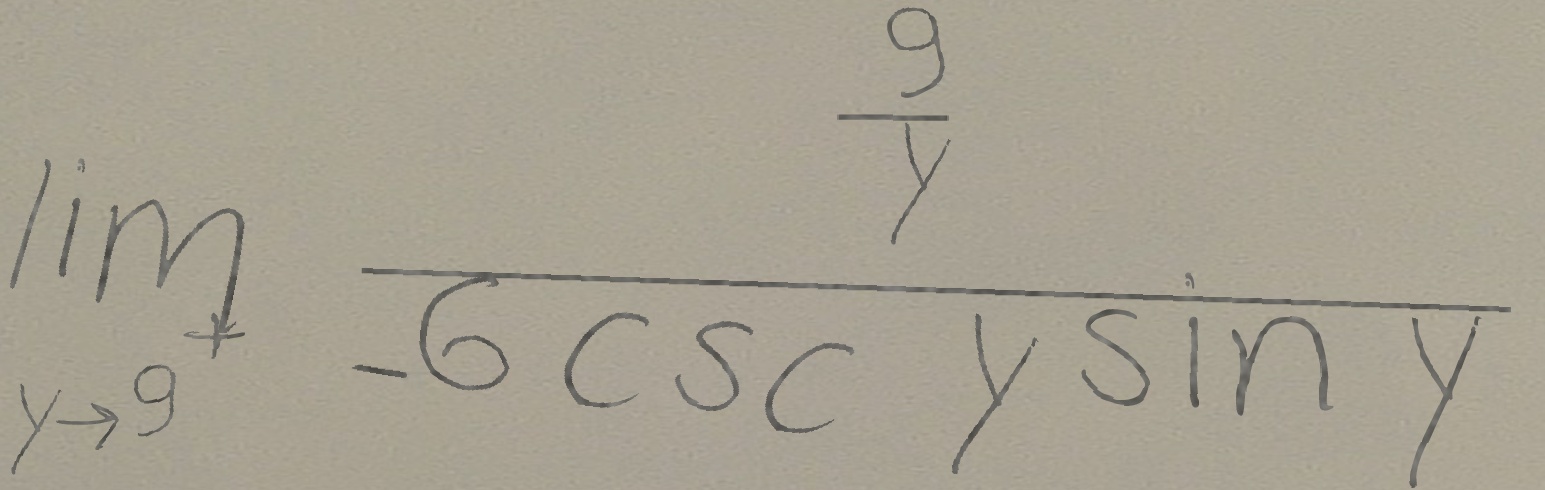 \lim_{y \to 9^+} \frac{\frac{9}{y}}{-6 \csc y \sin y}